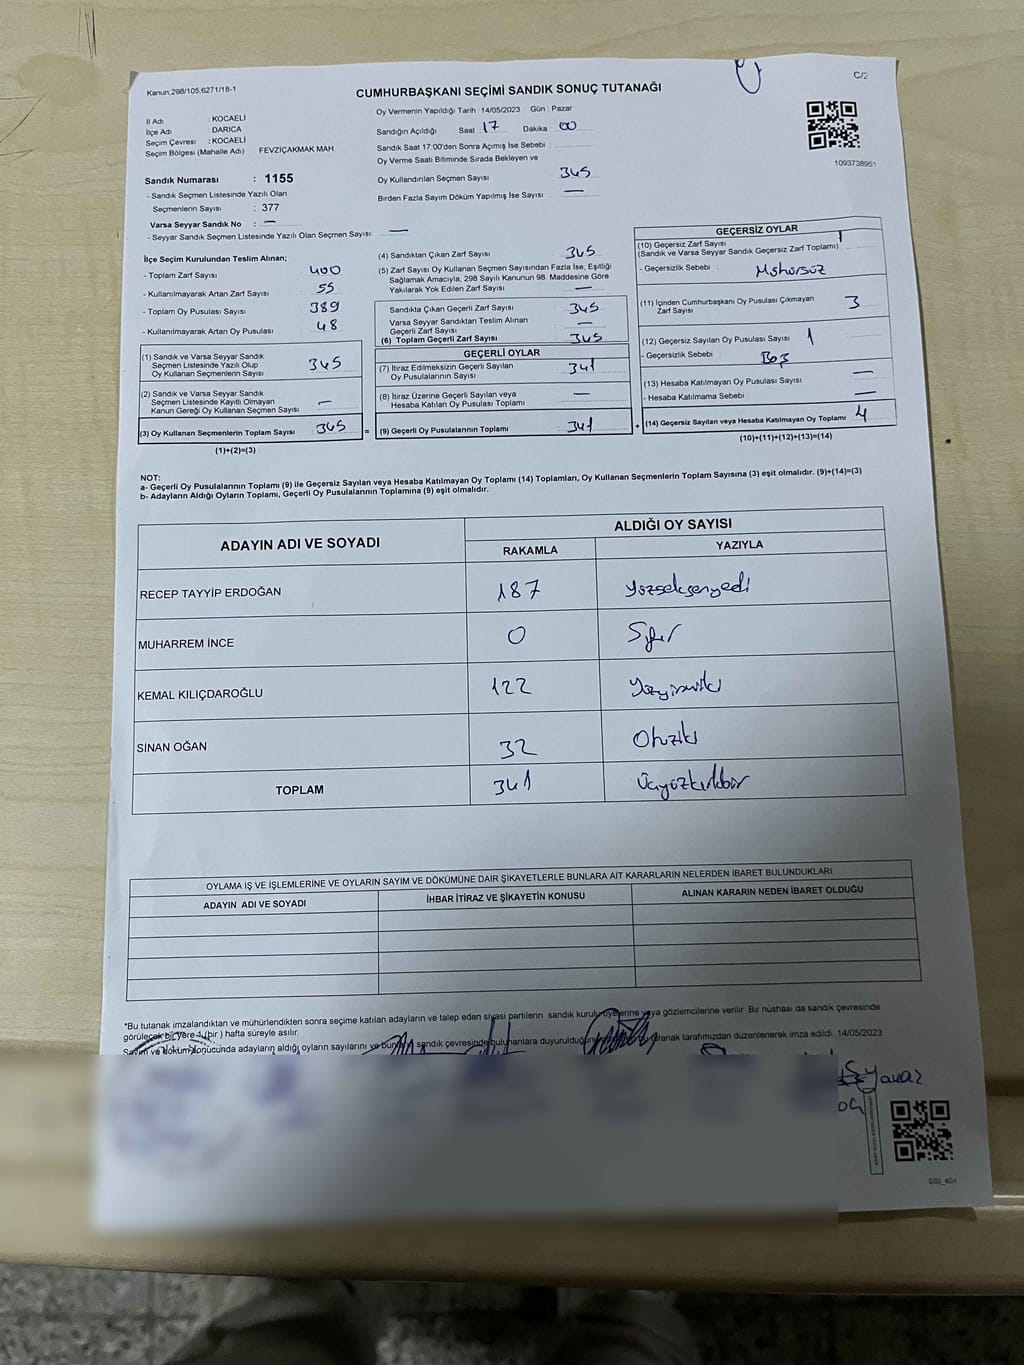 Kanun,298/105,6271/18-1
C/2
CUMHURBAŞKANI SEÇİMİ SANDIK SONUÇ TUTANAĞI
İl Adı : KOCAELİ
İlçe Adı : DARICA
Seçim Çevresi : KOCAELİ
Seçim Bölgesi (Mahalle Adı) FEVZİÇAKMAK MAH.
Sandık Numarası : 1155
- Sandık Seçmen Listesinde Yazılı Olan
Seçmenlerin Sayısı : 377
Varsa Seyyar Sandık No : —
- Seyyar Sandık Seçmen Listesinde Yazılı Olan Seçmen Sayısı: —
Oy Vermenin Yapıldığı Tarih : 14/05/2023 Gün : Pazar
Sandığın Açıldığı Saat : 17 Dakika : 00
Sandık Saat 17:00'den Sonra Açımış İse Sebebi :
Oy Verme Saati Bitiminde Sırada Bekleyen ve
Oy Kullandırılan Seçmen Sayısı : 345
Birden Fazla Sayım Döküm Yapılmış İse Sayısı : —
1093738951
İlçe Seçim Kurulundan Teslim Alınan;
- Toplam Zarf Sayısı : 400
- Kullanılmayarak Artan Zarf Sayısı : 55
- Toplam Oy Pusulası Sayısı : 389
- Kullanılmayarak Artan Oy Pusulası : 48
(1) Sandık ve Varsa Seyyar Sandık
Seçmen Listesinde Yazılı Olup
Oy Kullanan Seçmenlerin Sayısı : 345
(2) Sandık ve Varsa Seyyar Sandık
Seçmen Listesinde Kayıtlı Olmayan
Kanun Gereği Oy Kullanan Seçmen Sayısı : —
(3) Oy Kullanan Seçmenlerin Toplam Sayısı : 345
(1)+(2)=(3)
(4) Sandıktan Çıkan Zarf Sayısı : 345
(5) Zarf Sayısı Oy Kullanan Seçmen Sayısından Fazla İse; Eşitliği
Sağlamak Amacıyla; 298 Sayılı Kanunun 98. Maddesine Göre
Yakılarak Yok Edilen Zarf Sayısı : —
Sandıkta Çıkan Geçerli Zarf Sayısı : 345
Varsa Seyyar Sandıktan Teslim Alınan
Geçerli Zarf Sayısı : —
(6) Toplam Geçerli Zarf Sayısı : 345
GEÇERLİ OYLAR
(7) İtiraz Edilmeksizin Geçerli Sayılan
Oy Pusulalarının Sayısı : 341
(8) İtiraz Üzerine Geçerli Sayılan veya
Hesaba Katılan Oy Pusulası Toplamı : —
= (9) Geçerli Oy Pusulalarının Toplamı : 341
GEÇERSİZ OYLAR
(10) Geçersiz Zarf Sayısı : 1
(Sandık ve Varsa Seyyar Sandık Geçersiz Zarf Toplamı)
- Geçersizlik Sebebi : Mühürsüz
(11) İçinden Cumhurbaşkanı Oy Pusulası Çıkmayan
Zarf Sayısı : 3
(12) Geçersiz Sayılan Oy Pusulası Sayısı : 1
- Geçersizlik Sebebi : Boş
(13) Hesaba Katılmayan Oy Pusulası Sayısı : —
- Hesaba Katılmama Sebebi : —
+ (14) Geçersiz Sayılan veya Hesaba Katılmayan Oy Toplamı : 4
(10)+(11)+(12)+(13)=(14)
NOT:
a- Geçerli Oy Pusulalarının Toplamı (9) ile Geçersiz Sayılan veya Hesaba Katılmayan Oy Toplamı (14) Toplamları, Oy Kullanan Seçmenlerin Toplam Sayısına (3) eşit olmalıdır. (9)+(14)=(3)
b- Adayların Aldığı Oyların Toplamı, Geçerli Oy Pusulalarının Toplamına (9) eşit olmalıdır.
ADAYIN ADI VE SOYADI
ALDIĞI OY SAYISI
RAKAMLA YAZIYLA
RECEP TAYYİP ERDOĞAN 187 Yüzseksenyedi
MUHARREM İNCE 0 Sıfır
KEMAL KILIÇDAROĞLU 122 Yüzyirmiiki
SİNAN OĞAN 32 Otuziki
TOPLAM 341 Üçyüzkırkbir
OYLAMA İŞ VE İŞLEMLERİNE VE OYLARIN SAYIM VE DÖKÜMÜNE DAİR ŞİKAYETLERLE BUNLARA AİT KARARLARIN NELERDEN İBARET BULUNDUKLARI
ADAYIN ADI VE SOYADI İHBAR İTİRAZ VE ŞİKAYETİN KONUSU ALINAN KARARIN NEDEN İBARET OLDUĞU
*Bu tutanak imzalandıktan ve mühürlendikten sonra seçime katılan adayların ve talep eden siyasi partilerin sandık kurulu üyelerine veya gözlemcilerine verilir. Bir nüshası da sandık çevresinde
görülecek bir yere 1 (bir) hafta süreyle asılır.
Sayım ve döküm sonucunda adayların aldığı oyların sayılarını ve bunun sandık çevresinde bulunanlara duyurulduğunu tutanak tarafımızdan düzenlenerek imza edildi. 14/05/2023